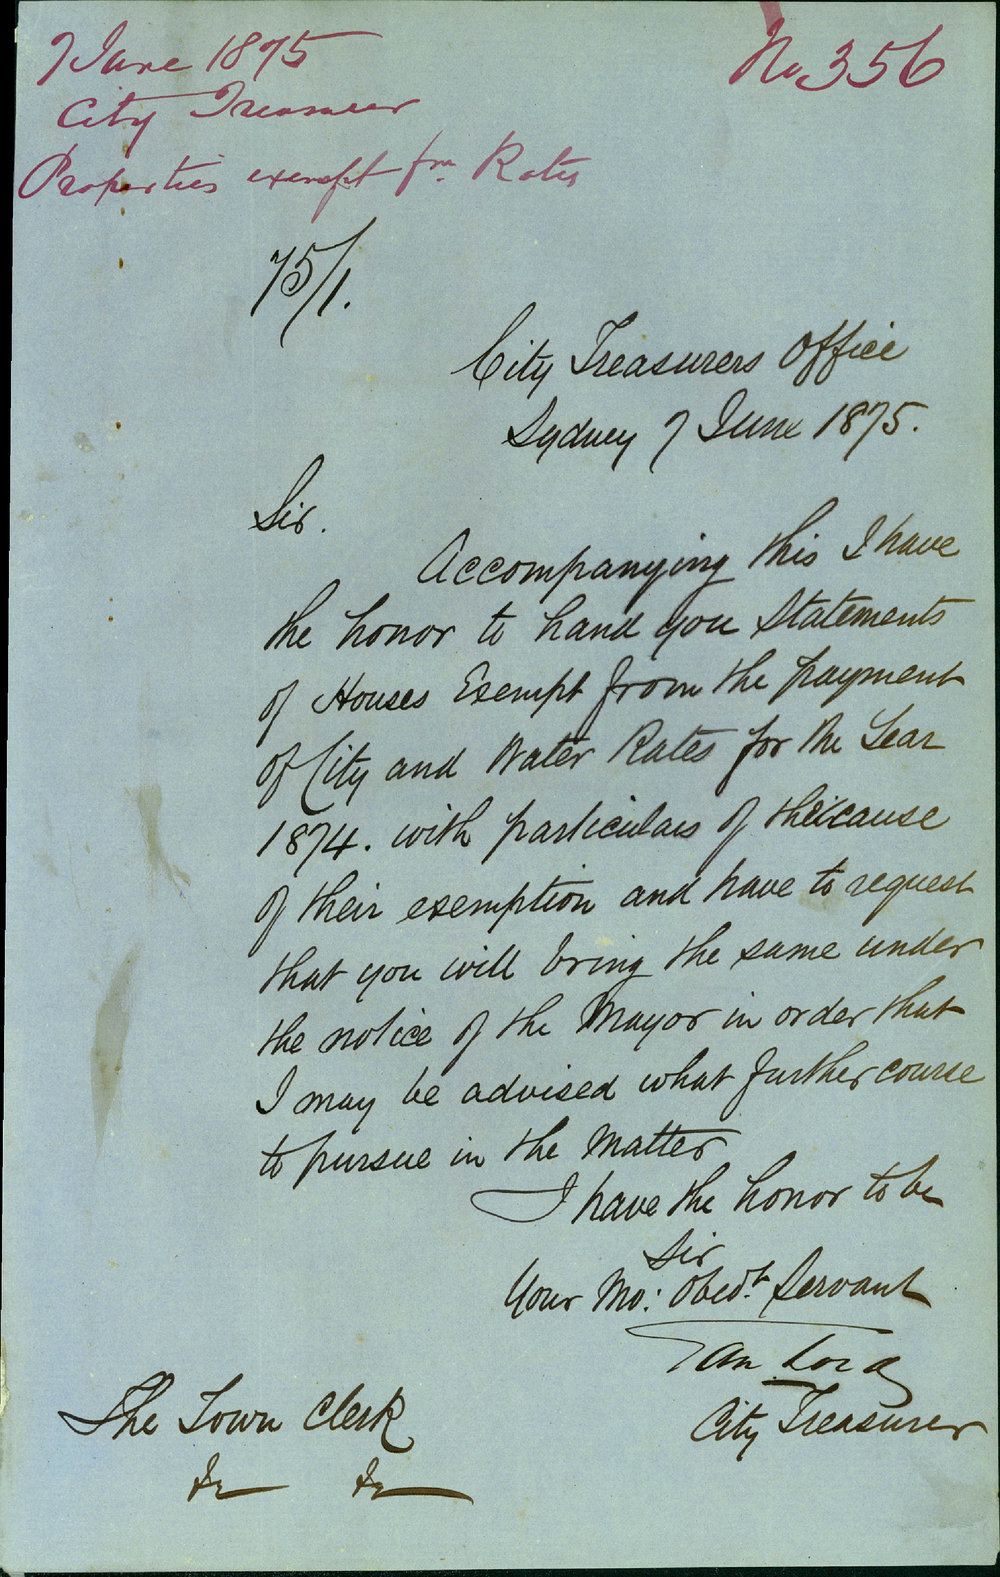 7 June 1875
No 356
City Treasurer
Properties exempt frm. Rates
75/1.
City Treasurers Office
Sydney 7 June 1875.
Sir.
Accompanying this I have
the honor to hand you Statements
of Houses Exempt from the payment
of City and Water Rates for the Year
1874. with particulars of the cause
of their exemption and have to request
that you will bring the same under
the notice of the Mayor in order that
I may be advised what further course
to pursue in the Matter
I have the honor to be
Sir
Your Mo: Obedt. Servant
Lord
City Treasurer
The Town Clerk
&c &c